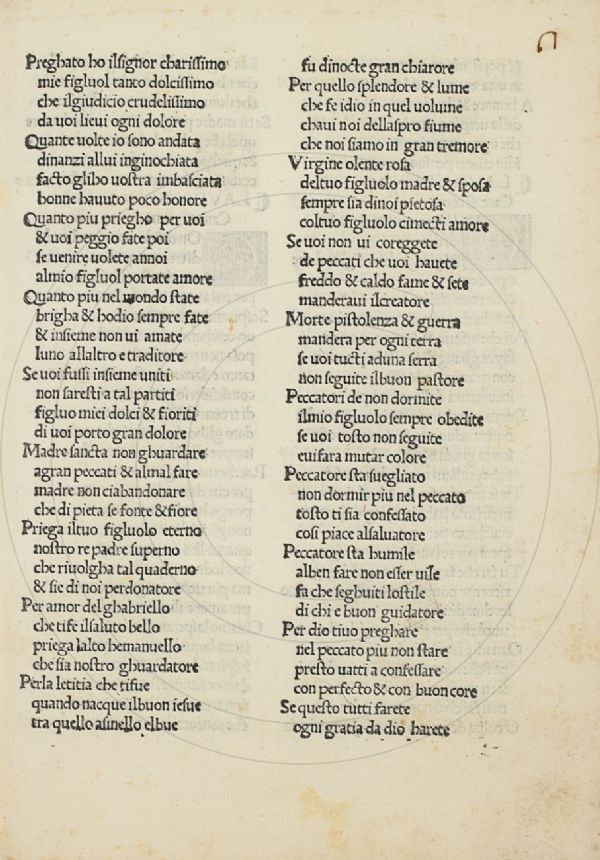 Preghato ho ilsignor charissimo
mie figluol tanto dolcissimo
che ilgiudicio crudelissimo
da uoi lieui ogni dolore
Quante uolte io sono andata
dinanzi allui inginochiata
facto glibo uostra imbasciata
bonne hauuto poco honore
Quanto piu priegho per uoi
& uoi peggio fate poi
se uenire uolete annoi
almio figluol portate amore
Quanto piu nel mondo state
brigha & hodio sempre fate
& insieme non ui amate
luno allaltro e traditore
Se uoi fussi insieme uniti
non saresti a tal partiti
figluo miei dolci & fioriti
di uoi porto gran dolore
Madre sancta non ghuardare
agran peccati & almal fare
madre non ciabandonare
che di pieta se fonte & fiore
Priega iltuo figluolo eterno
nostro re padre superno
che riuolgha tal quaderno
& sie di noi perdonatore
Per amor del ghabriello
che tife ilsaluto bello
priega lalto hemanuello
che sia nostro ghuardatore
Perla letitia che tifue
quando nacque ilbuon iesue
tra quello asinello elbue
fu dinocte gran chiarore
Per quello splendore & lume
che fe idio in quel uolume
chaui noi dellaspro fiume
che noi siamo in gran tremore
Virgine olente rosa
deltuo figluolo madre & sposa
sempre sia dinoi pietosa
coltuo figluolo cimecti amore
Se uoi non ui coreggete
de peccati che uoi hauete
freddo & caldo fame & sete
manderaui ilcreatore
Morte pistolenza & guerra
mandera per ogni terra
se uoi tucti aduna serra
non seguite ilbuon pastore
Peccatori de non dormite
ilmio figluolo sempre obedite
se uoi tosto non seguite
cui fara mutar colore
Peccatore sta suegliato
non dormir piu nel peccato
tosto ti sia confessato
cosi piace alsaluatore
Peccatore sta humile
alben fare non esser uile
fa che seghuiti lostile
di chi e buon guidatore
Per dio tiuo preghare
nel peccato piu non stare
presto uatti a confessare
con perfecto & con buon core
Se questo tutti farete
ogni gratia da dio harete